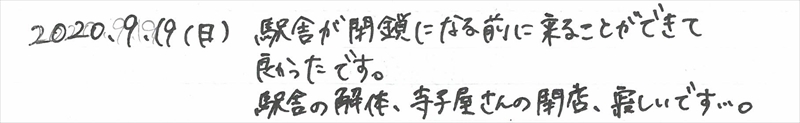 2020.9.19(日) 駅舎が閉鎖になる前に来ることができて
良かったです。
駅舎の解体、寺子屋さんの閉店、寂しいです…。